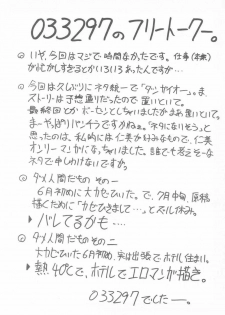 033297のフリートークー。
◎いや、今回はマジで時間なかったです。仕事(本業)
がいそがしすぎるとかいろいろあったんですが…
◎今回は久しぶりにネタ統一で「ダンガイオー」。ま、
ストーリは予想通りだったので置いといて。
最終回とかボーゼンとしちゃいましたがまあ置いといて。
まーや、ぱりパンチラですかねぇ。「ネタになりそう」と
思ったのは。私的には仁美が好みなので、仁美
オンリーマンガになっちゃいました。誰でも考えそーな
ネタで申しわけないですが。
◎ダメ人間だもの その一
6月初めに大カゼひいた。で、7月中旬、原稿
描くために「カゼひきまして…」とズル休み。
▶バレてるかも…
◎ダメ人間だもの その二
大カゼひいた6月初め、実は出張でホテル住まい。
▶熱40℃で、ホテルでエロマンガ描き。
033297でしたー。